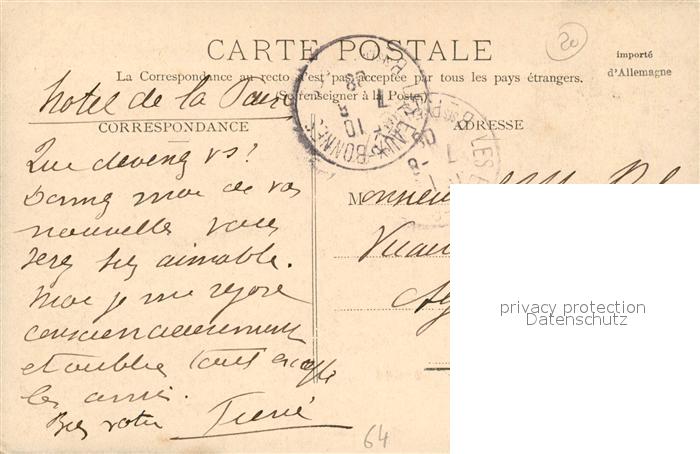 CARTE POSTALE
La Correspondance au recto n'est pas acceptée par tous les pays étrangers.
(Se renseigner à la Poste)
importé
d'Allemagne
20
hotel de la Paix
CORRESPONDANCE
ADRESSE
EAUX-BONNES
Que devenez vs?
Donnez moi de vos
nouvelles vous
serez très aimable.
Moi je me repose
consciencieusement
et oublie tout excepté
les amis.
Bien votre
Monsieur
64
privacy protection
Datenschutz